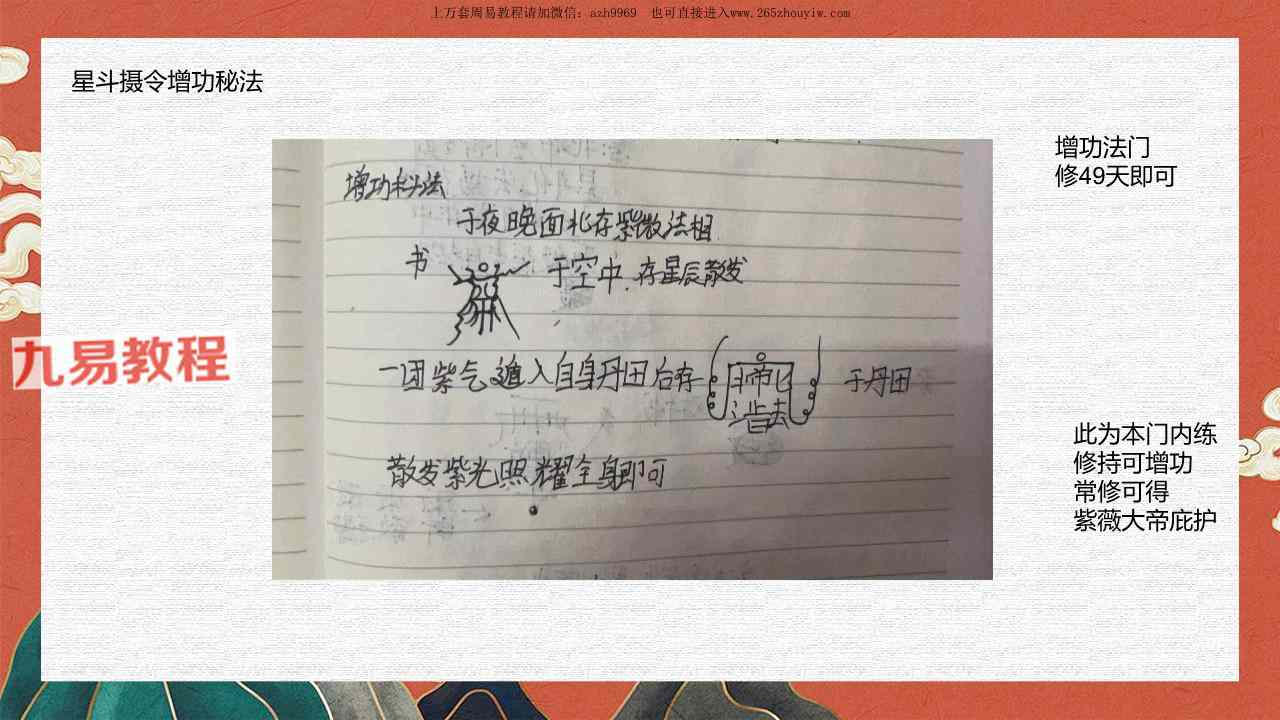 上万套周易教程请加微信：azh9969 也可直接进入www.265zhouyiw.com
星斗摄令增功秘法
增功法门
修49天即可
增功秘法
于夜晚面北存紫微法相.
书 于空中.存星辰散发
一团紫气 进入自身丹田后存 于丹田
散发紫光照耀全身即可
九易教程
此为本门内练
修持可增功
常修可得
紫薇大帝庇护